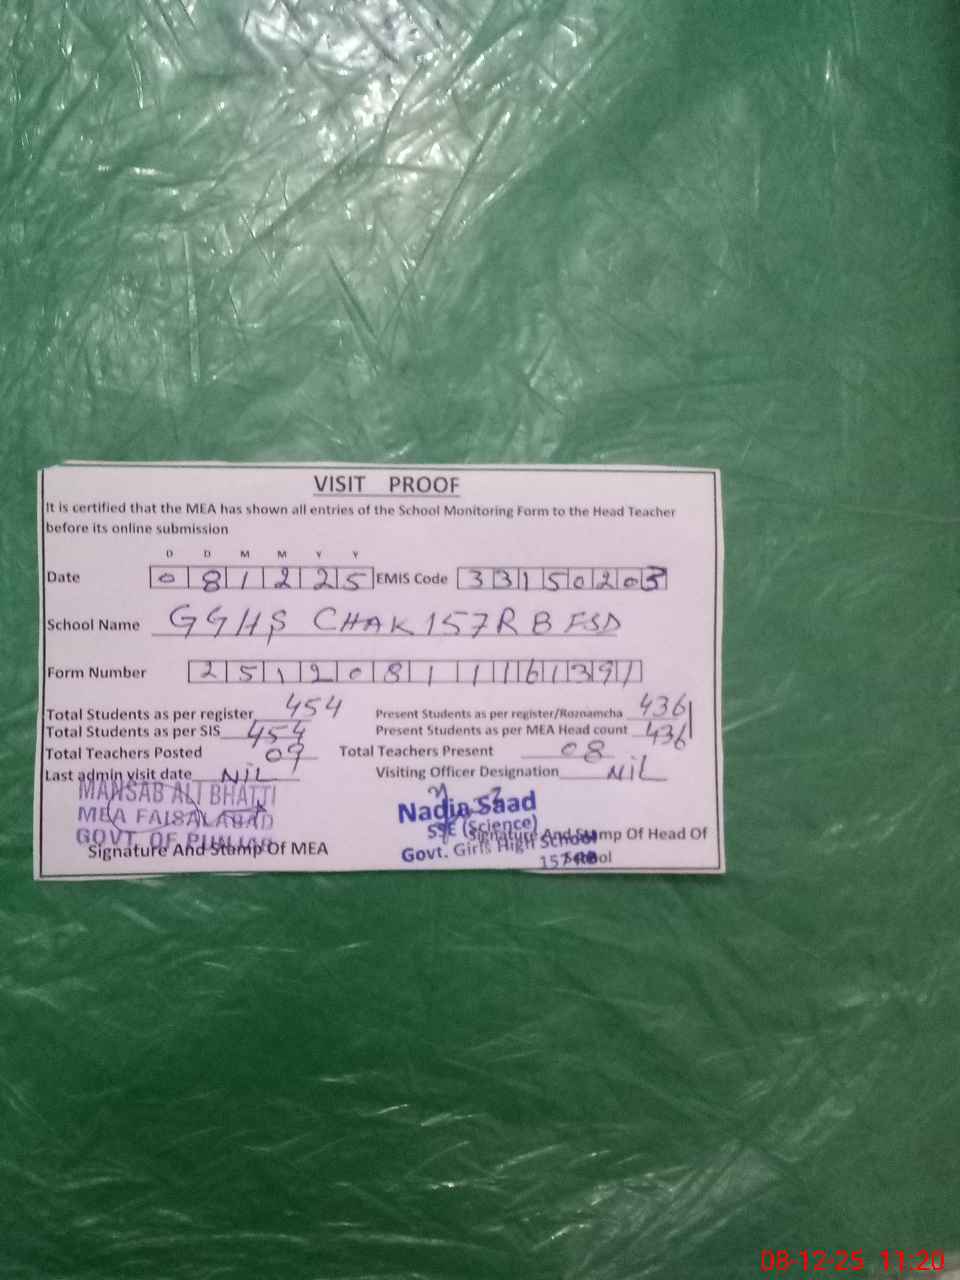 VISIT PROOF
It is certified that the MEA has shown all entries of the School Monitoring Form to the Head Teacher
before its online submission
D D M M Y Y
Date 0 8 1 2 2 5 EMIS Code 3 3 1 5 0 2 0 5
School Name GGHS CHAK 157 RB FSD
Form Number 2 5 1 2 0 8 1 1 1 6 1 3 9 1
Total Students as per register 454 Present Students as per register/Roznamcha 436
Total Students as per SIS 454 Present Students as per MEA Head count 436
Total Teachers Posted 09 Total Teachers Present 08
Last admin visit date NIL Visiting Officer Designation NIL
MANSAB ALI BHATTI
MEA FAISALABAD
GOVT. OF PUNJAB
Signature And Stamp Of MEA
Nadia Saad
SSE (Science)
Govt. Girls High School
157 RB
Signature And Stamp Of Head Of
School
08-12-25 11:20